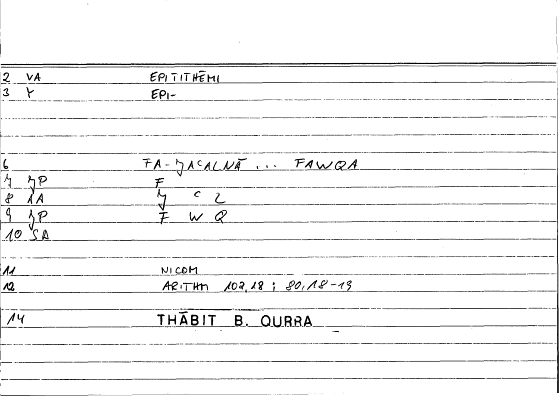 2 VA EPITITHĒMI
3 EPI-
6 FA-JACALNĀ ... FAWQA
7 JP F
8 1A J C L
9 JP F W Q
10 SA
11 NICOM
12 ARITHM 102,18 ; 80,18-19
14 THĀBIT B. QURRA